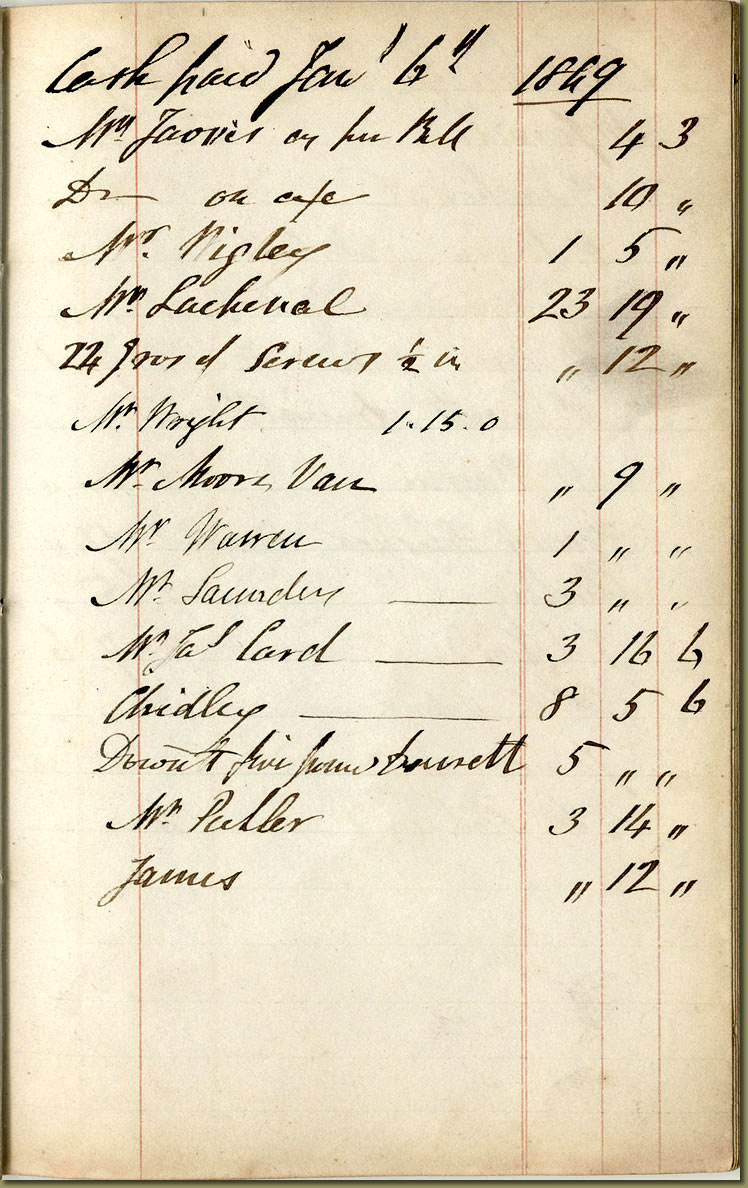 Cash paid Jany 6th 1849
Mrs Jarvis on her Bill 4 3
Do on a/c 10 "
Mr. Rigley 1 5 "
Mr Lachenal 23 19 "
24 Gross of Screws ½ in " 12 "
Mr. Wright 1.15.0
Mr Moore Van " 9 "
Mr Warren 1 " "
Mr Saunders — 3 " "
Mr Jas Card — 3 16 6
Chidley — 8 5 6
five 5 " "
Mr 3 14 "
James " 12 "